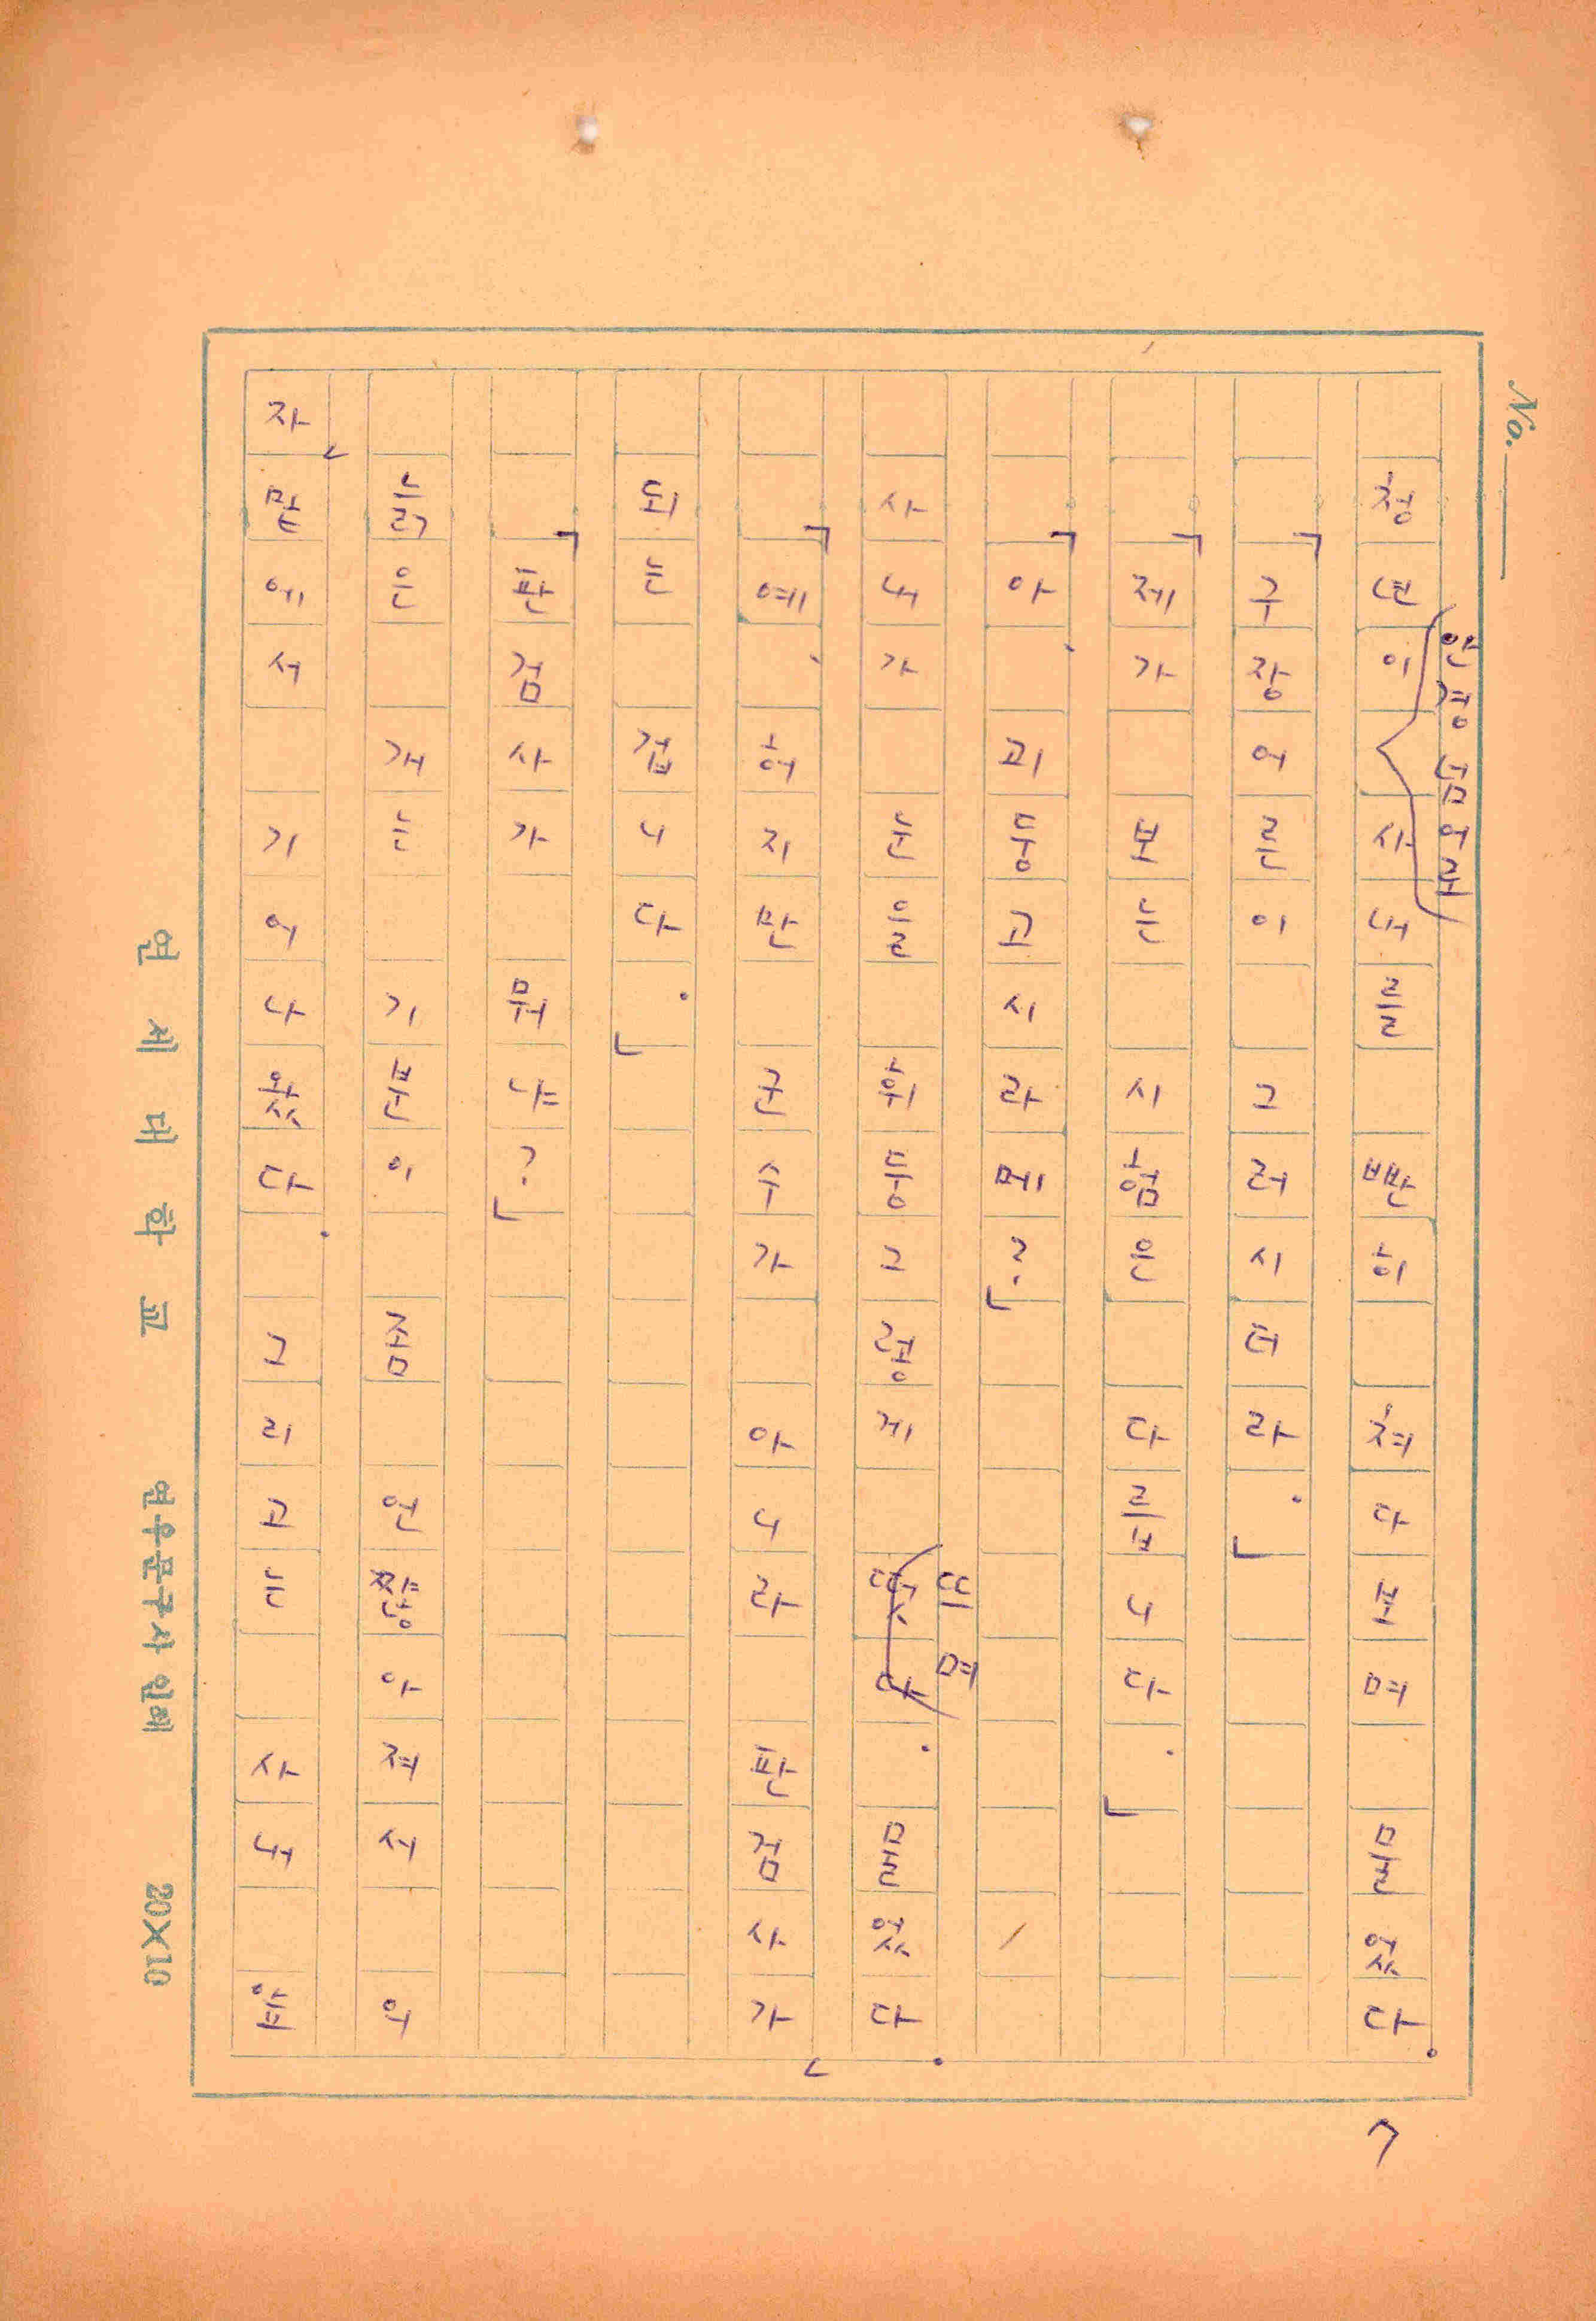 청년이 사내를 빤히 쳐다보며 물었다.
「구장어른이 그러시더라.」
「제가 보는 시험은 다릅니다.」
「아, 고등고시라메?」
뜨며
사내가 눈을 휘둥그렇게 떴다. 물었다.
「예, 허지만 군수가 아니라 판검사가,
되는 겁니다.」
「판검사가 뭐냐?」
늙은 개는 기분이 좀 언짢아져서 의
자, 밑에서 기어나왔다. 그리고는 사내
No.
7
연세대학교 연우문구사 인쇄 20×10